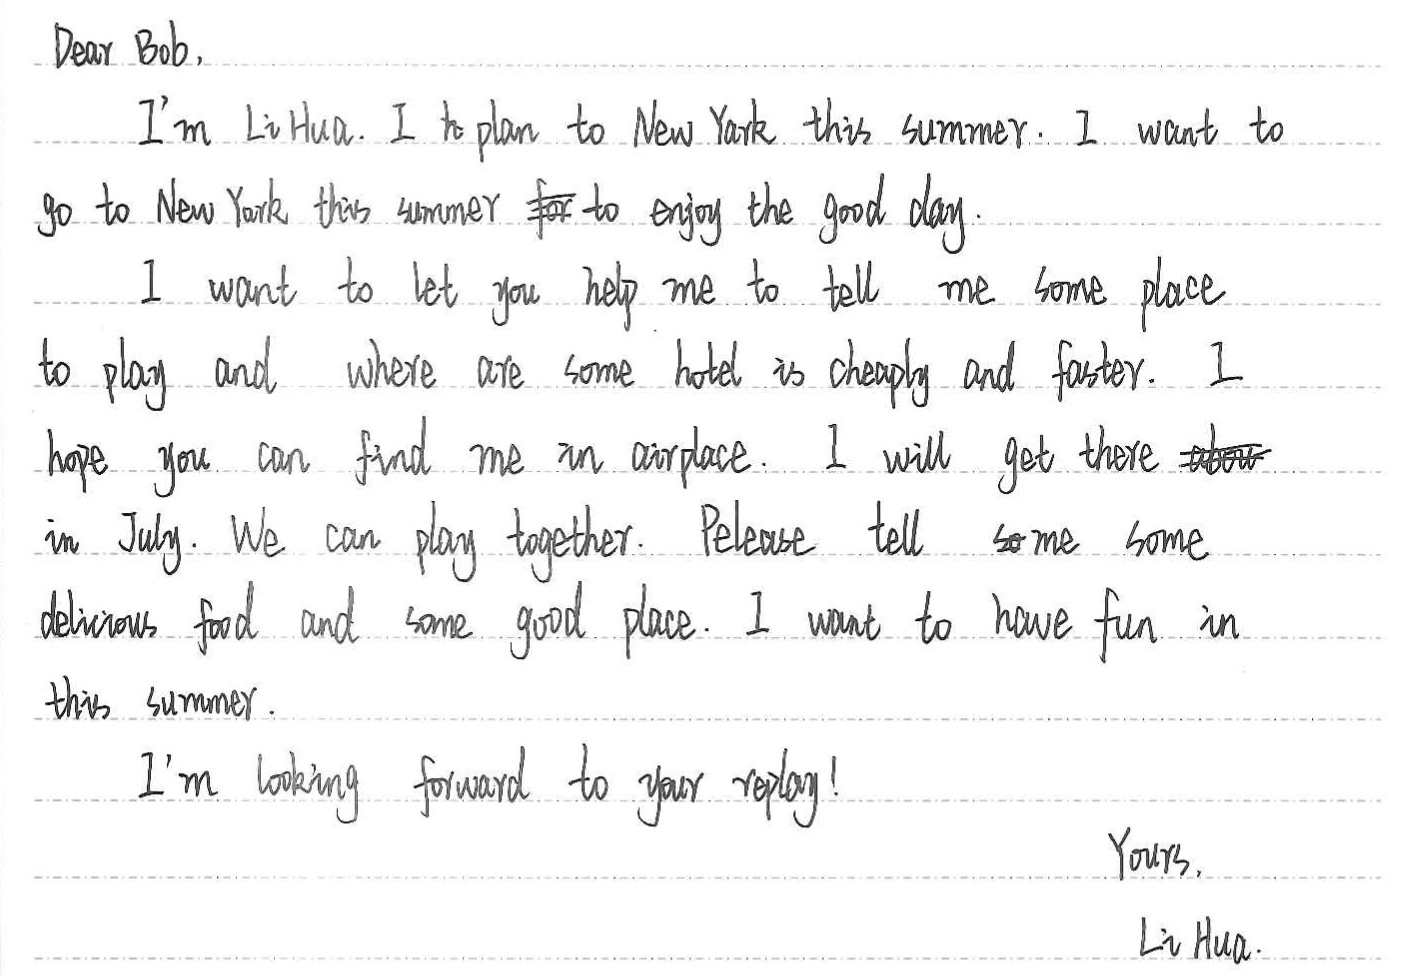 Dear Bob,
I'm Li Hua. I to plan to New York this summer. I want to
go to New York this summer for to enjoy the good day.
I want to let you help me to tell me some place
to play and where are some hotel is cheaply and faster. I
hope you can find me in airplace. I will get there abou
in July. We can play together. Pelease tell so me some
delicious food and some good place. I want to have fun in
this summer.
I'm looking forward to your replay!
Yours,
Li Hua.